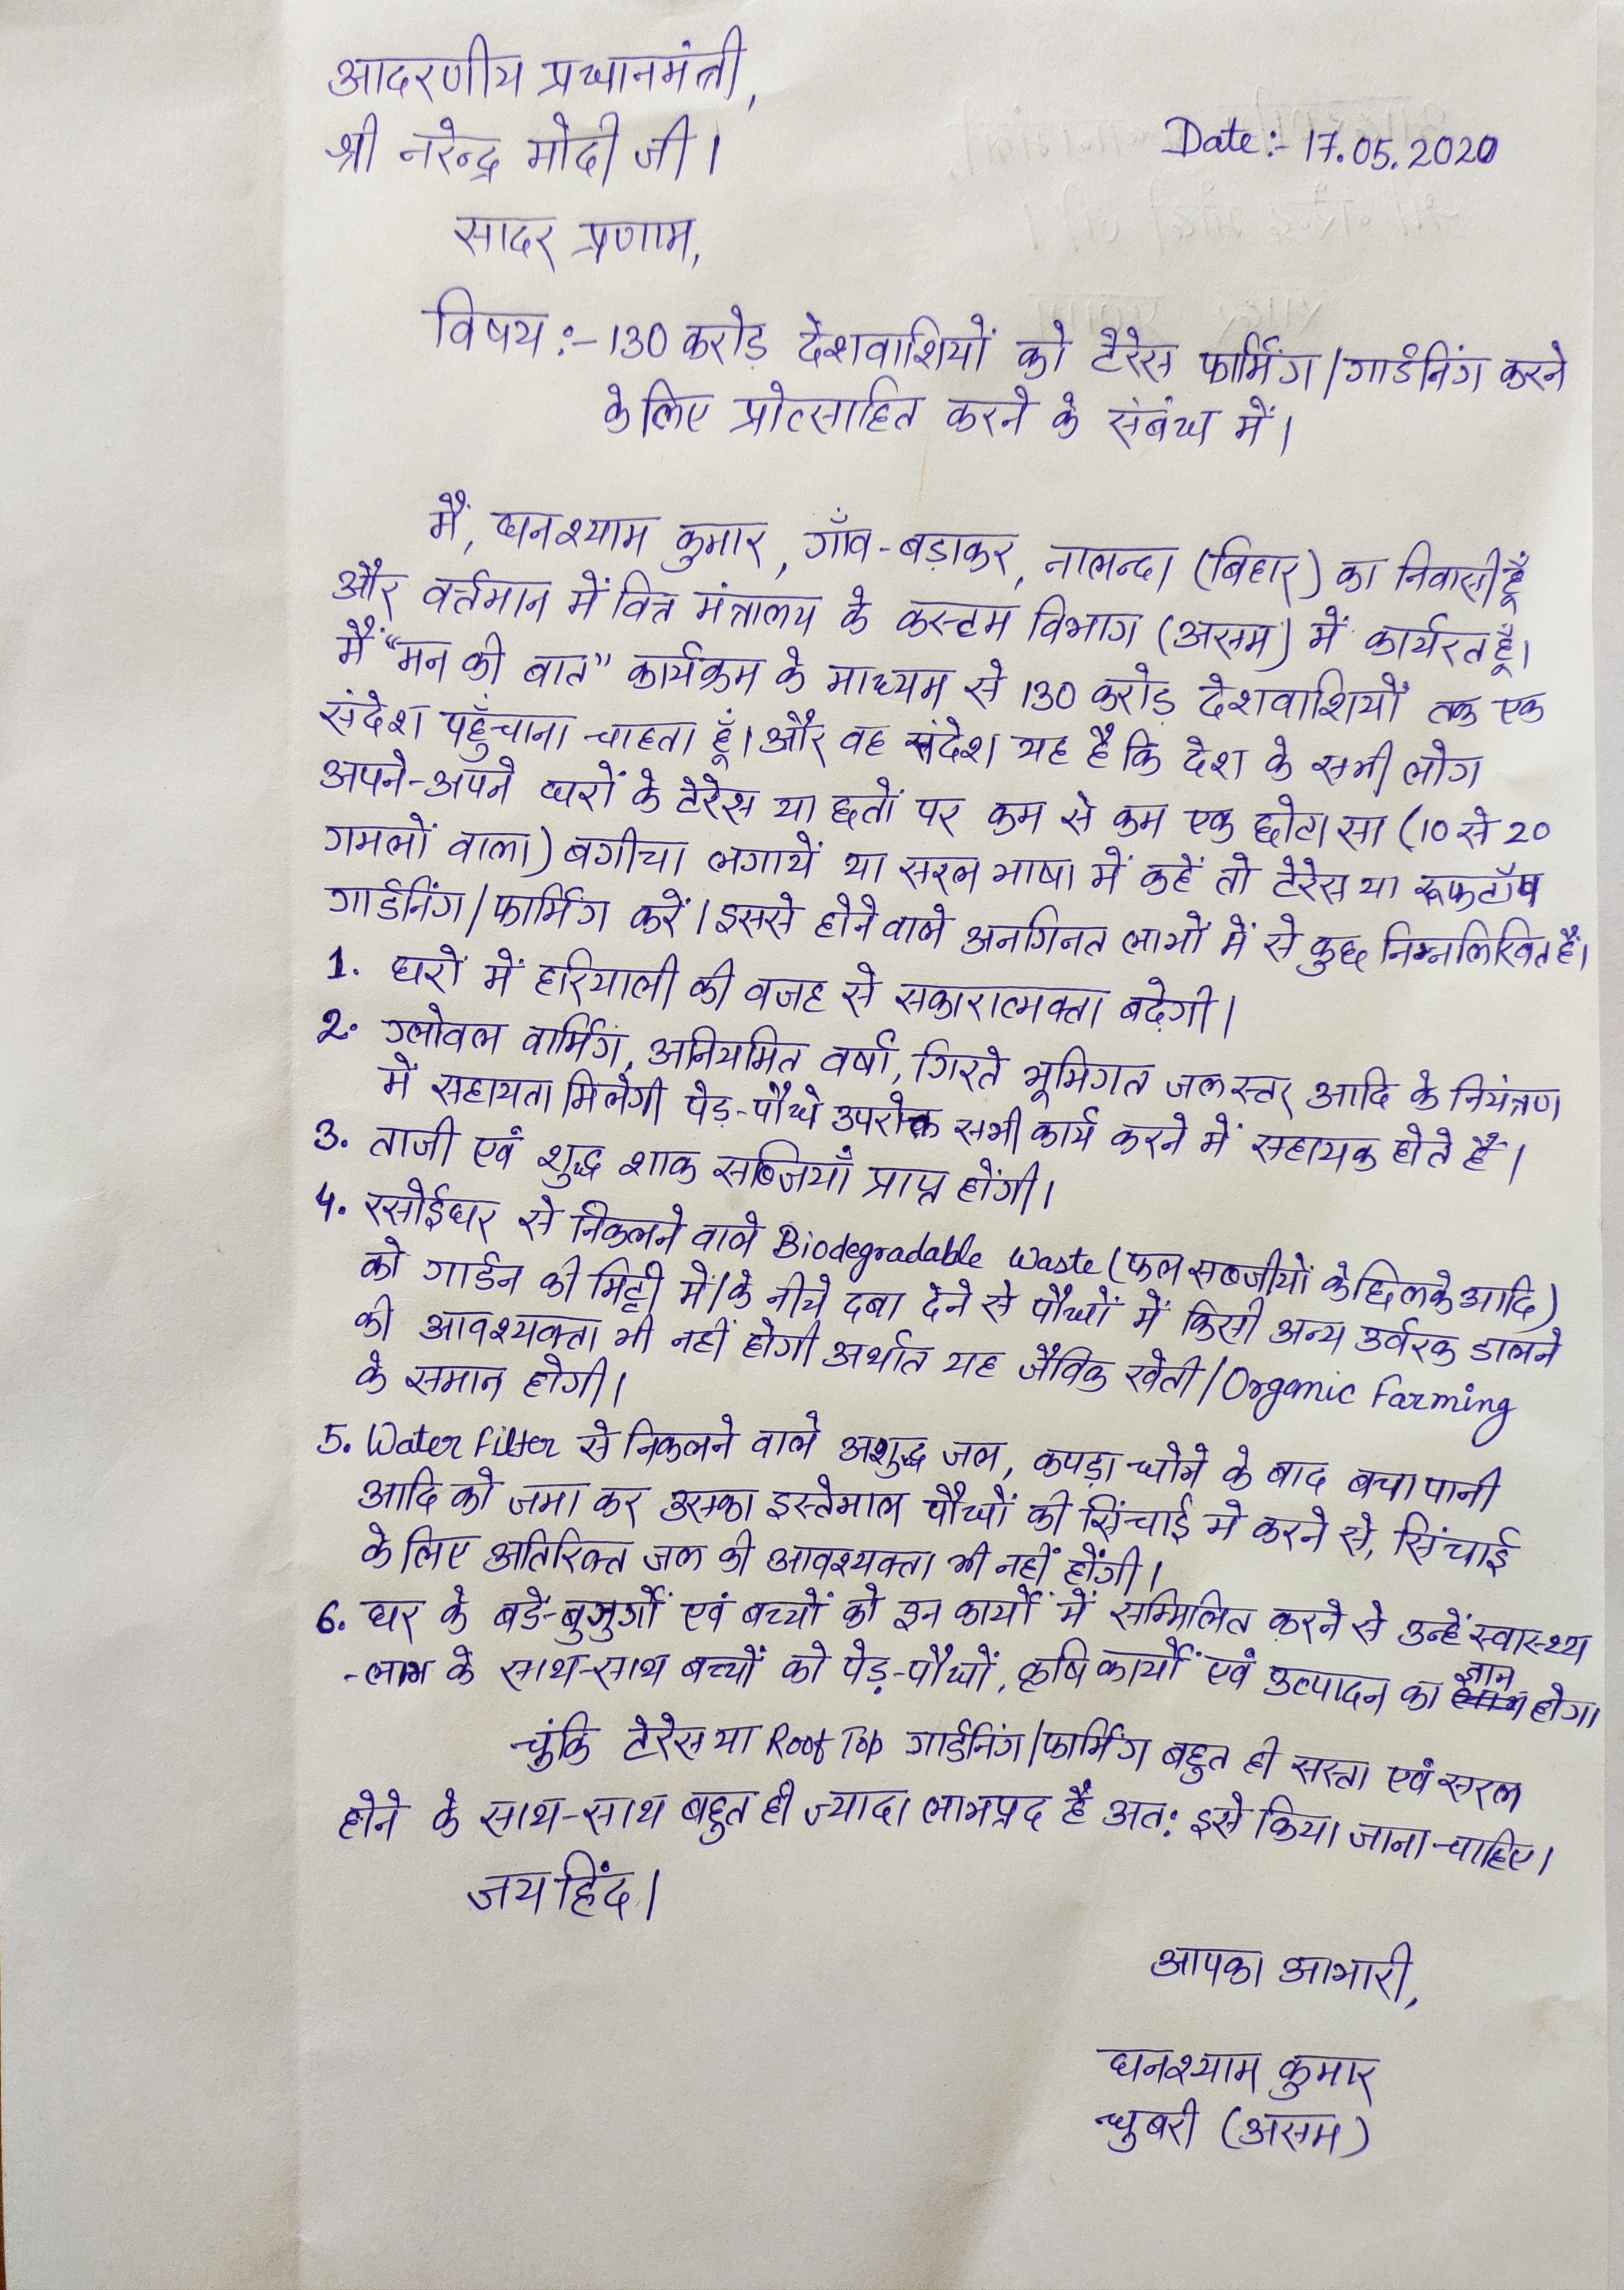 आदरणीय प्रधानमंत्री,
श्री नरेन्द्र मोदी जी।
Date:- 17.05.2020
सादर प्रणाम,
विषय:- 130 करोड़ देशवाशियों को टैरेस फार्मिंग/गार्डनिंग करने
के लिए प्रोत्साहित करने के संबंध में।
मैं, घनश्याम कुमार, गाँव-बड़ाकर, नालन्दा (बिहार) का निवासी हूँ
और वर्तमान में वित्त मंत्रालय के कस्टम विभाग (असम) में कार्यरत हूँ।
मैं "मन की बात" कार्यक्रम के माध्यम से 130 करोड़ देशवाशियों तक एक
संदेश पहुँचाना चाहता हूँ। और वह संदेश यह है कि देश के सभी लोग
अपने-अपने घरों के टेरेस या छतों पर कम से कम एक छोटा सा (10 से 20
गमलों वाला) बगीचा लगायें या सरल भाषा में कहें तो टेरेस या रूफटॉप
गार्डनिंग/फार्मिंग करें। इससे होने वाले अनगिनत लाभों में से कुछ निम्नलिखित हैं।
1. घरों में हरियाली की वजह से सकारात्मक्ता बढ़ेगी।
2. ग्लोवल वार्मिंग, अनियमित वर्षा, गिरते भूमिगत जल स्तर आदि के नियंत्रण
में सहायता मिलेगी पेड़-पौधे उपरोक्त सभी कार्य करने में सहायक होते हैं।
3. ताजी एवं शुद्ध शाक सब्जियाँ प्राप्त होंगी।
4. रसोईघर से निकलने वाले Biodegradable Waste (फल सब्जीयों के छिलके आदि)
को गार्डन की मिट्टी में/के नीचे दबा देने से पौधों में किसी अन्य उर्वरक डालने
की आवश्यक्ता भी नहीं होगी अर्थात यह जैविक खेती/Organic Farming
के समान होगी।
5. Water Filter से निकलने वाले अशुद्ध जल, कपड़ा धोने के बाद बचा पानी
आदि को जमा कर उसका इस्तेमाल पौधों की सिंचाई में करने से, सिंचाई
के लिए अतिरिक्त जल की आवश्यक्ता भी नहीं होंगी।
6. घर के बडे-बुजुर्गों एवं बच्चों को इन कार्यों में सम्मिलित करने से उन्हें स्वास्थ्य
-लाभ के साथ-साथ बच्चों को पेड़-पौधों, कृषि कार्यों एवं उत्पादन का ज्ञान होगा।
चुंकि टेरेस या Roof Top गार्डनिंग/फार्मिंग बहुत ही सस्ता एवं सरल
होने के साथ-साथ बहुत ही ज्यादा लाभप्रद है अत: इसे किया जाना चाहिए।
जय हिंद।
आपका आभारी,
घनश्याम कुमार
धुबरी (असम)